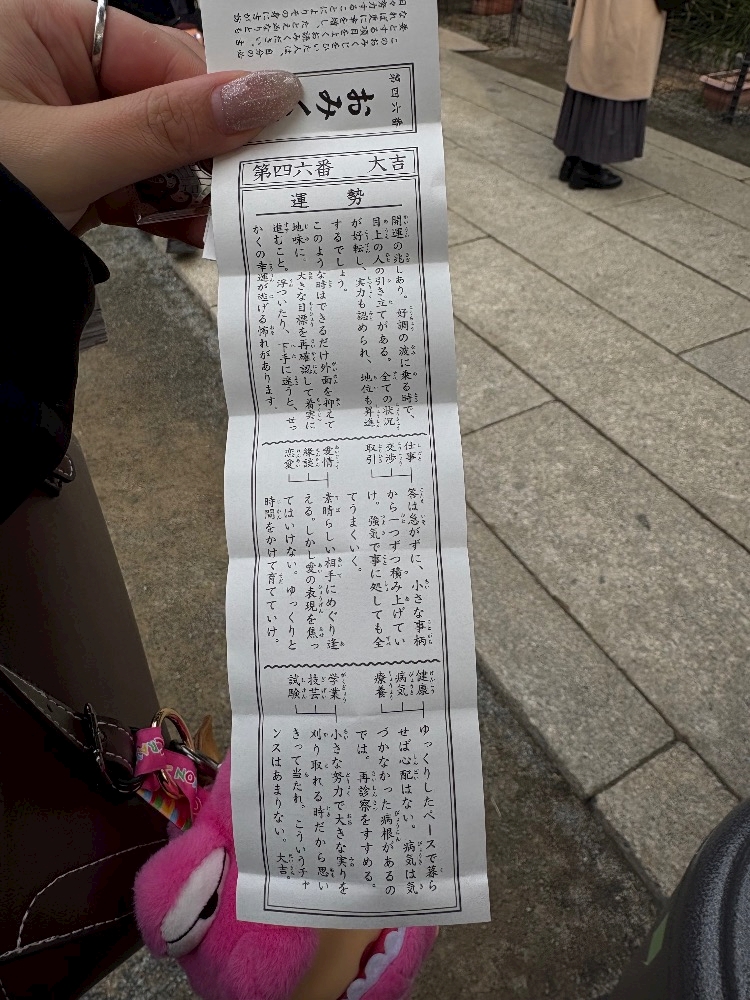 第四六番
おみく
第四六番 大吉
運勢
開運の兆しあり。好調の波に乗る時で、
目上の人の引き立てがある。全ての状況
が好転し、実力も認められ、地位も昇進
するでしょう。
このような時はできるだけ外面を抑えて
地味に、大きな目標を再確認して着実に
進むこと。浮ついたり、下手に迷うと、せっ
かくの幸運が逃げる怖れがあります。
仕事
交渉
取引
答は急がずに、小さな事柄
から一つずつ積み上げてい
け。強気で事に処しても全
てうまくいく。
愛情
縁談
恋愛
素晴らしい相手にめぐり逢
える。しかし愛の表現を焦っ
てはいけない。ゆっくりと
時間をかけて育てていけ。
健康
病気
療養
ゆっくりしたペースで暮ら
せば心配はない。病気は気
づかなかった病根があるの
では。再診察をすすめる。
学業
技芸
試験
小さな努力で大きな実りを
刈り取れる時だから思い
きって当たれ。こういうチャ
ンスはあまりない。大吉。